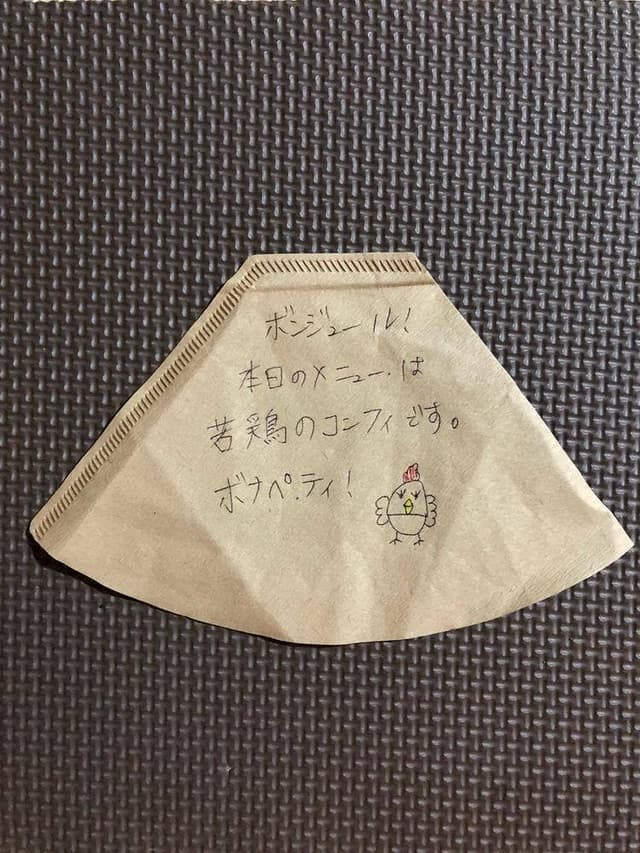 ボンジュール!
本日のメニューは
若鶏のコンフィです。
ボナペティ!